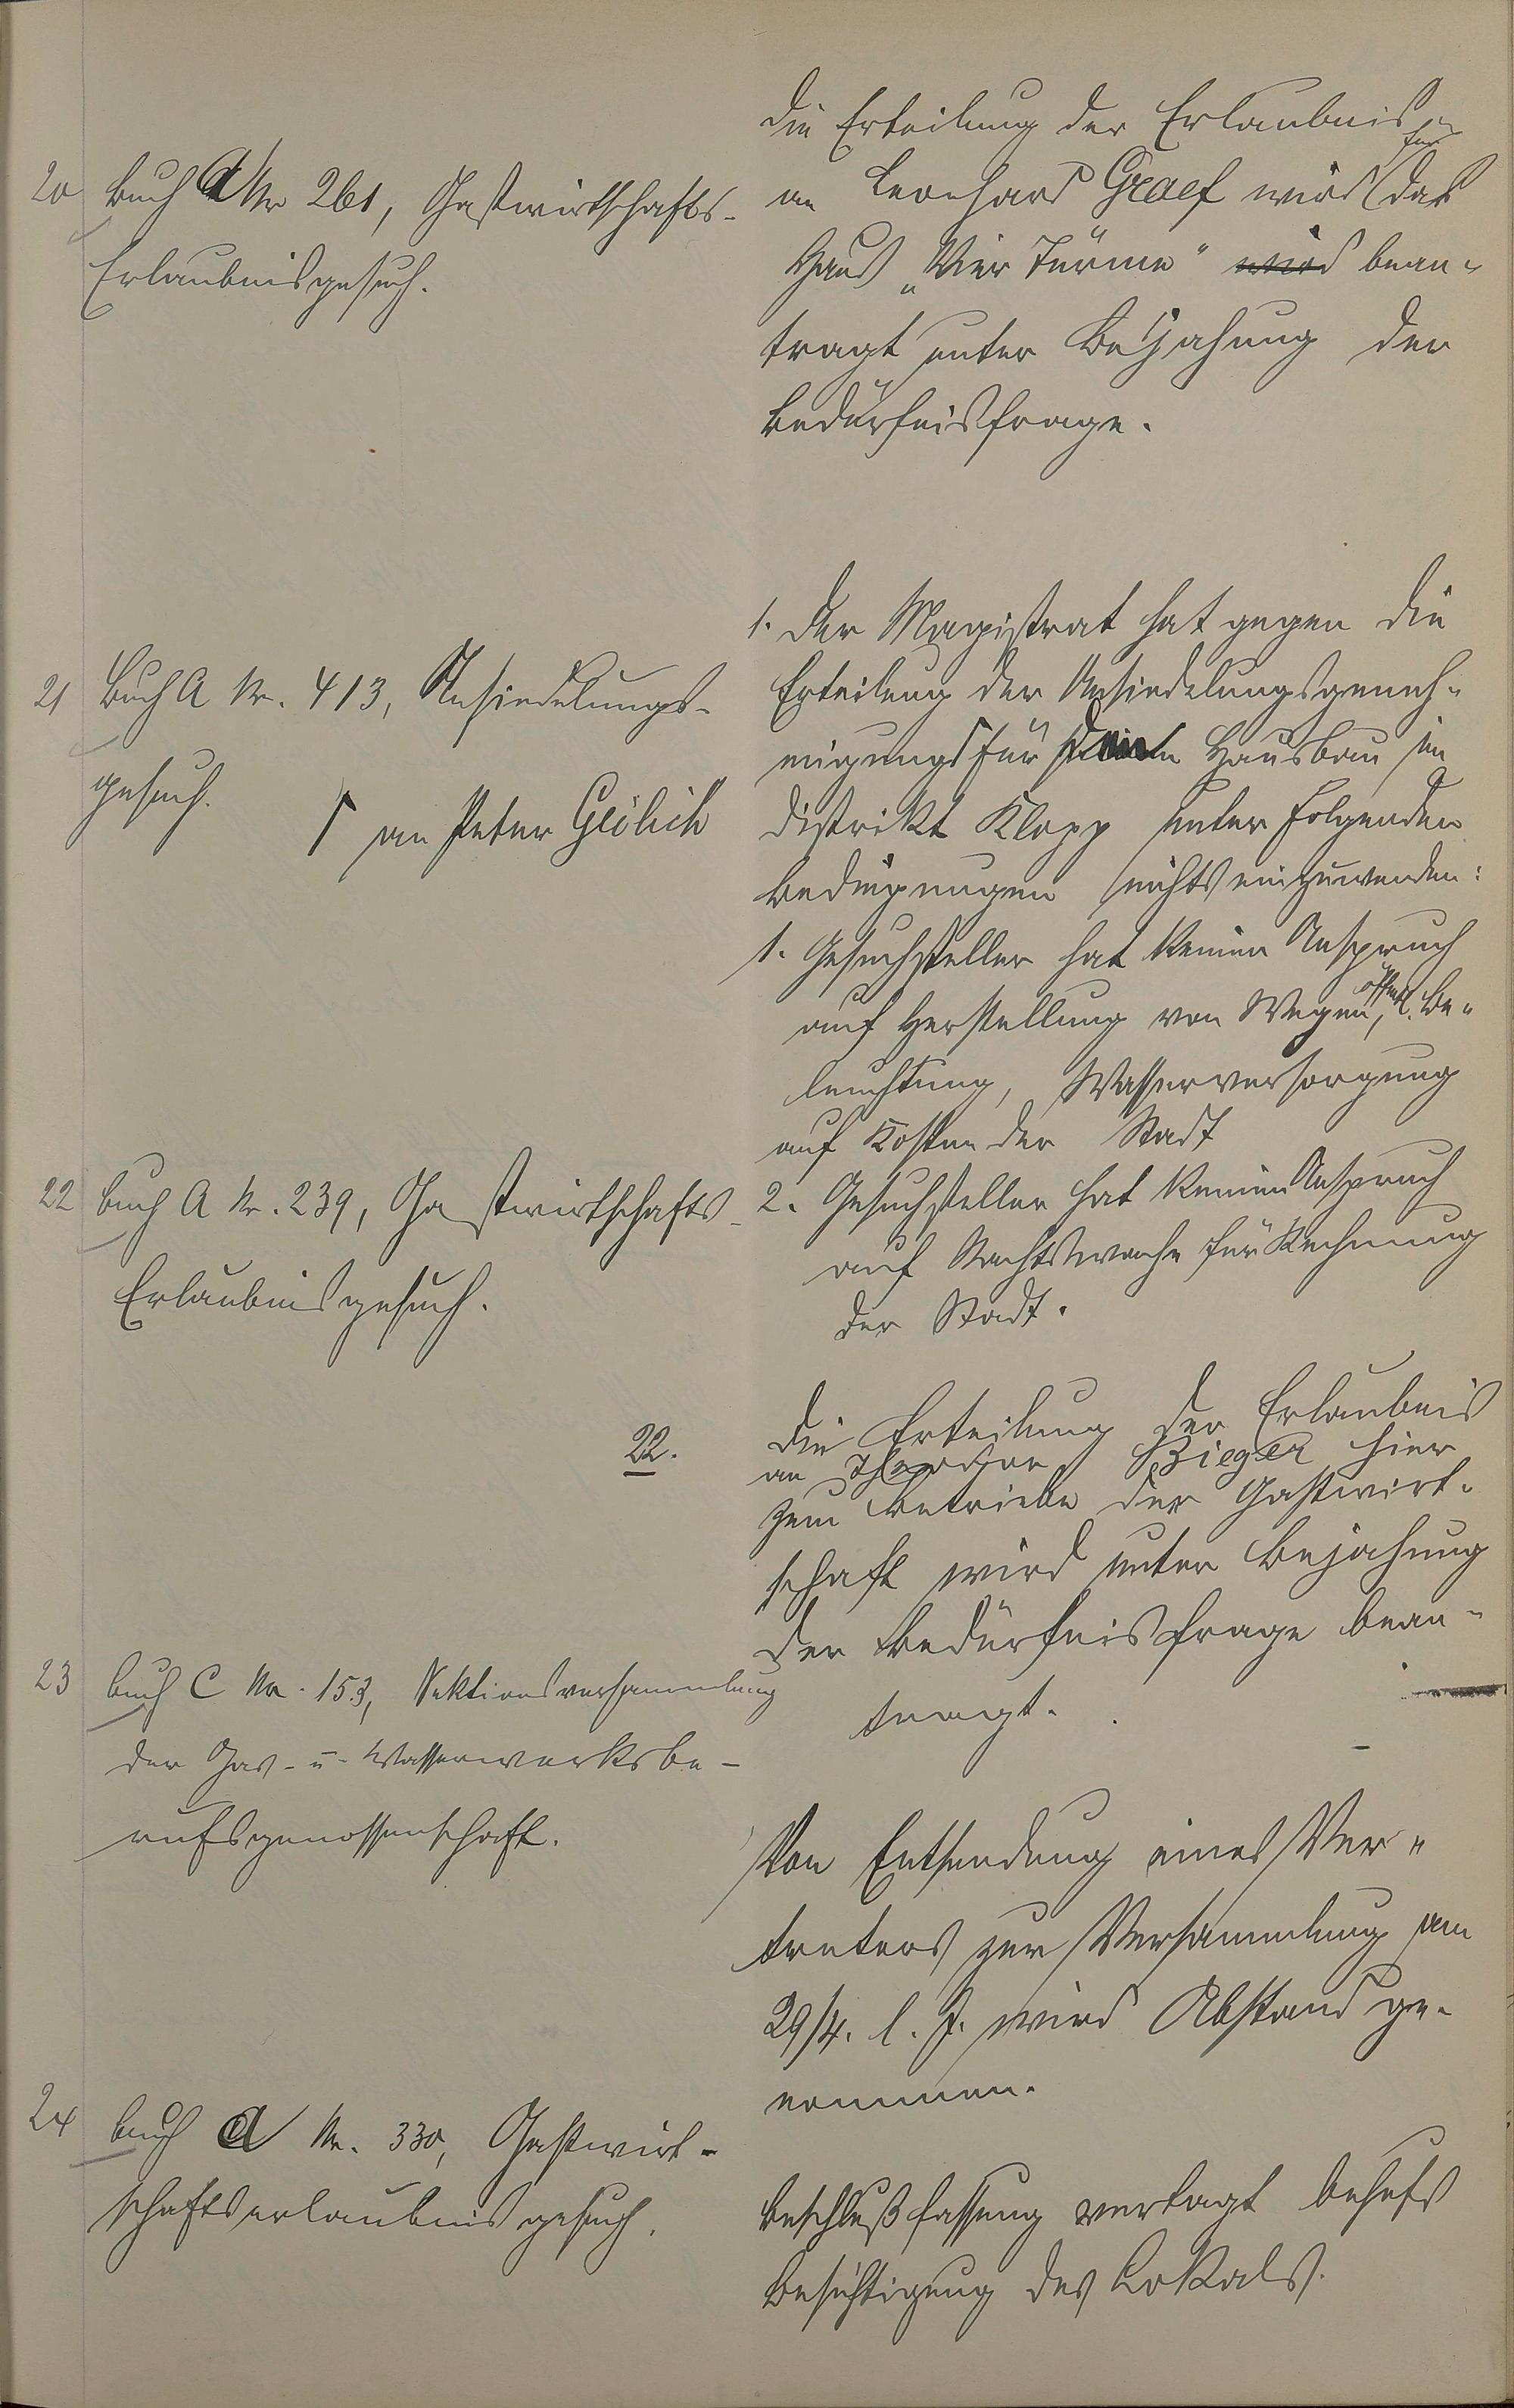 20 Buch A Nr 261, Gastwirtschafts-
Erlaubnisgesuch.
die Erteilung der Erlaubnis
an Leonhard Graef wird für das
Haus „Vier Türme" wird bean-
tragt unter Bejahung der
Bedürfnisfrage.
21 Buch A Nr. 413, Ansiedelungs-
gesuch.
an Peter Geölich
1. der Magistrat hat gegen die
Erteilung der Ansiedelungsgeneh-
migung für Hausbau im
Distrikt Klopp unter folgenden
Bedingungen nichts einzuwenden:
1. Gesuchsteller hat keinen Anspruch
auf Herstellung von Wegen, öffentl. Be-
leuchtung, Wasserversorgung
auf Kosten der Stadt
2. Gesuchsteller hat keinen Anspruch
auf Nachtwache für Rechnung
der Stadt.
22 Buch A Nr. 239, Gastwirtschafts-
Erlaubnisgesuch.
22.
die Erteilung der Erlaubnis
an Theodor Zieger hier
zum Betriebe der Gastwirt-
schaft wird unter Bejahung
der Bedürfnisfrage bean-
tragt.
23 Buch C Nr. 153, Sektionsversammlung
der Gas- u. Wasserwerksbe-
rufsgenossenschaft.
Von Entsendung eines Ver-
treters zur Versammlung am
29/4. l. J. wird Abstand ge-
nommen.
24 Buch A Nr. 330, Gastwirt-
schaftserlaubnisgesuch.
Beschlußfassung vertagt behufs
Besichtigung des Lokals.